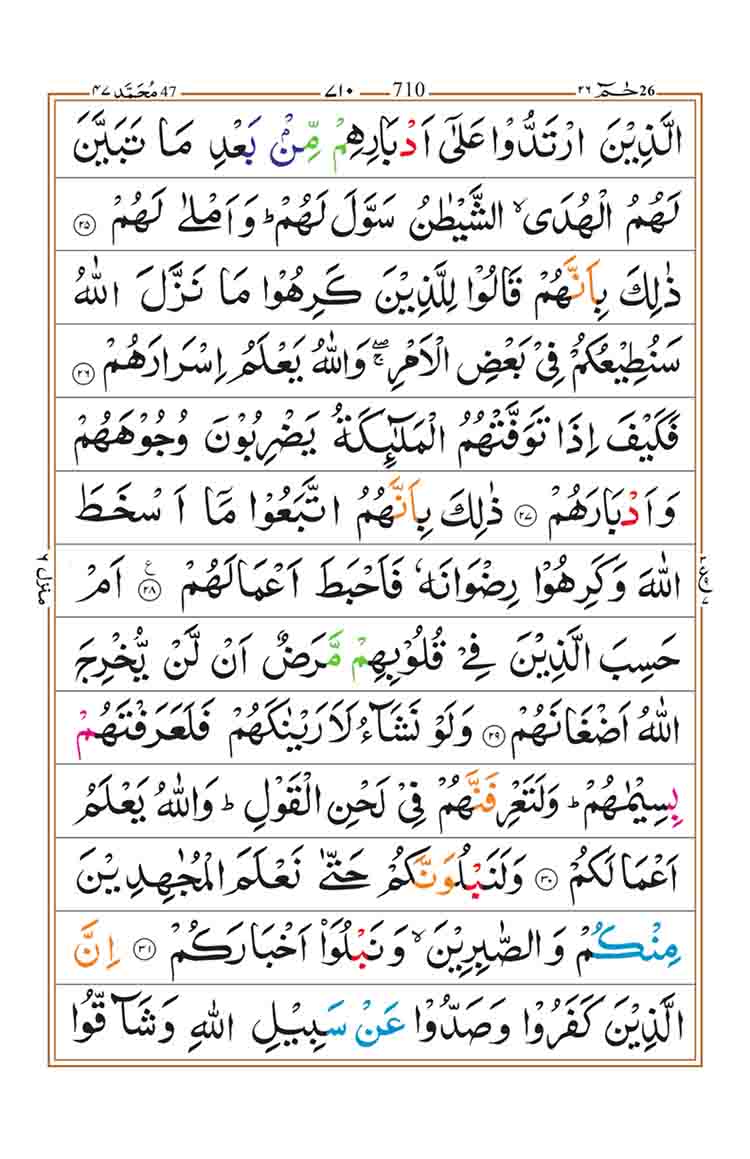 26 حٰمٓ ٢٦ 710 ٧١٠ 47 مُحَمَّد ٤٧
الَّذِيْنَ ارْتَدُّوْا عَلٰٓى اَدْبَارِهِمْ مِّنْۢ بَعْدِ مَا تَبَيَّنَ
لَهُمُ الْهُدَى ۙ الشَّيْطٰنُ سَوَّلَ لَهُمْ ؕ وَاَمْلٰى لَهُمْ ۝٢٥
ذٰلِكَ بِاَنَّهُمْ قَالُوْا لِلَّذِيْنَ كَرِهُوْا مَا نَزَّلَ اللّٰهُ
سَنُطِيْعُكُمْ فِيْ بَعْضِ الْاَمْرِ ۖۚ وَاللّٰهُ يَعْلَمُ اِسْرَارَهُمْ ۝٢٦
فَكَيْفَ اِذَا تَوَفَّتْهُمُ الْمَلٰٓئِكَةُ يَضْرِبُوْنَ وُجُوْهَهُمْ
وَاَدْبَارَهُمْ ۝٢٧ ذٰلِكَ بِاَنَّهُمُ اتَّبَعُوْا مَآ اَسْخَطَ
اللّٰهَ وَكَرِهُوْا رِضْوَانَهٗ فَاَحْبَطَ اَعْمَالَهُمْ ۝٢٨ ع اَمْ
حَسِبَ الَّذِيْنَ فِيْ قُلُوْبِهِمْ مَّرَضٌ اَنْ لَّنْ يُّخْرِجَ
اللّٰهُ اَضْغَانَهُمْ ۝٢٩ وَلَوْ نَشَآءُ لَاَرَيْنٰكَهُمْ فَلَعَرَفْتَهُمْ
بِسِيْمٰهُمْ ؕ وَلَتَعْرِفَنَّهُمْ فِيْ لَحْنِ الْقَوْلِ ؕ وَاللّٰهُ يَعْلَمُ
اَعْمَالَكُمْ ۝٣٠ وَلَنَبْلُوَنَّكُمْ حَتّٰى نَعْلَمَ الْمُجٰهِدِيْنَ
مِنْكُمْ وَالصّٰبِرِيْنَ ۙ وَنَبْلُوَا۟ اَخْبَارَكُمْ ۝٣١ اِنَّ
الَّذِيْنَ كَفَرُوْا وَصَدُّوْا عَنْ سَبِيْلِ اللّٰهِ وَشَآقُّوا
منزل ٦